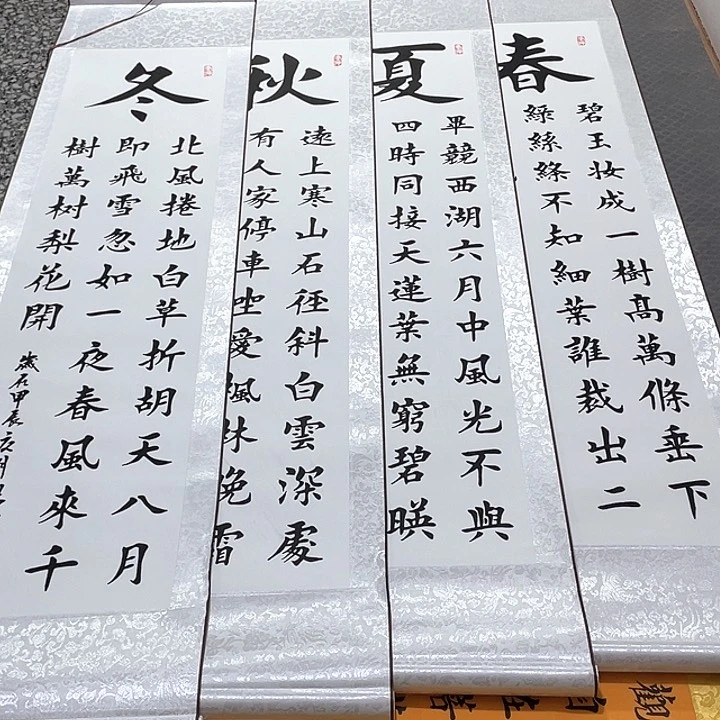 春
碧玉妆成一樹高萬條垂下
綠絲絛不知細葉誰裁出二
夏
畢競西湖六月中風光不與
四時同接天蓮葉無窮碧暎
秋
遠上寒山石徑斜白雲深處
有人家停車坐愛楓林晚霜
冬
北風捲地白草折胡天八月
即飛雪忽如一夜春風來千
樹萬树梨花開
歲在甲辰
觀自在菩